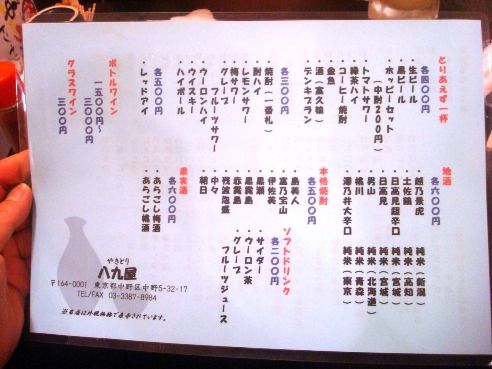 とりあえず一杯
各４００円
・生ビール
・黒ビール
・ホッピーセット
（中お２００円）
・トマトサワー
・緑茶ハイ
・コーヒー焼酎
・金魚
・酒（富久福）
・デンキブラン
各３００円
・焼酎（一番札）
・酎ハイ
・レモンサワー
・梅サワー
・グレープ
フルーツサワー
・ウーロンハイ
・ウイスキー
・ハイボール
各５００円
・レッドアイ
ボトルワイン
１５００円～
３０００円
グラスワイン
３００円
地酒
各６００円
・越乃景虎 純米（新潟）
・土佐鶴 純米（高知）
・日高見超辛口 純米（宮城）
・日高見 純米（宮城）
・男山 純米（北海道）
・桃川 純米（青森）
・澤乃井大辛口 純米（東京）
本格焼酎
各５００円
・島美人
・富乃宝山
・伊佐美
・黒瀬
・黒霧島
・赤霧島
・残波泡盛
・中々
・朝日
果実酒
各６００円
・あらごし梅酒
・あらごし桃酒
ソフトドリンク
各２００円
・サイダー
・ウーロン茶
・グレープ
フルーツジュース
やきとり
八九屋
〒164-0001 東京都中野区中野5-32-17
TEL/FAX 03-3387-8984
※当店は外税価格で表示されています。